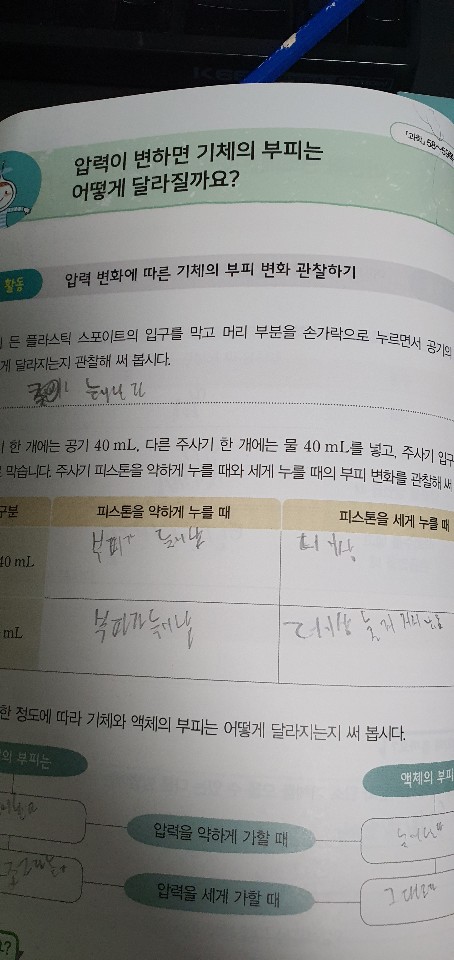 「과학」 58~59쪽
압력이 변하면 기체의 부피는
어떻게 달라질까요?
활동
압력 변화에 따른 기체의 부피 변화 관찰하기
든 플라스틱 스포이트의 입구를 막고 머리 부분을 손가락으로 누르면서 공기의
게 달라지는지 관찰해 써 봅시다.
늘어난다
한 개에는 공기 40 mL, 다른 주사기 한 개에는 물 40 mL를 넣고, 주사기 입구
막습니다. 주사기 피스톤을 약하게 누를 때와 세게 누를 때의 부피 변화를 관찰해 써
구분 피스톤을 약하게 누를 때 피스톤을 세게 누를 때
40 mL 부피가 늘어남 더 이상
mL 부피가 늘어남 더이상
한 정도에 따라 기체와 액체의 부피는 어떻게 달라지는지 써 봅시다.
의 부피는 액체의 부피
압력을 약하게 가할 때
압력을 세게 가할 때 그대로